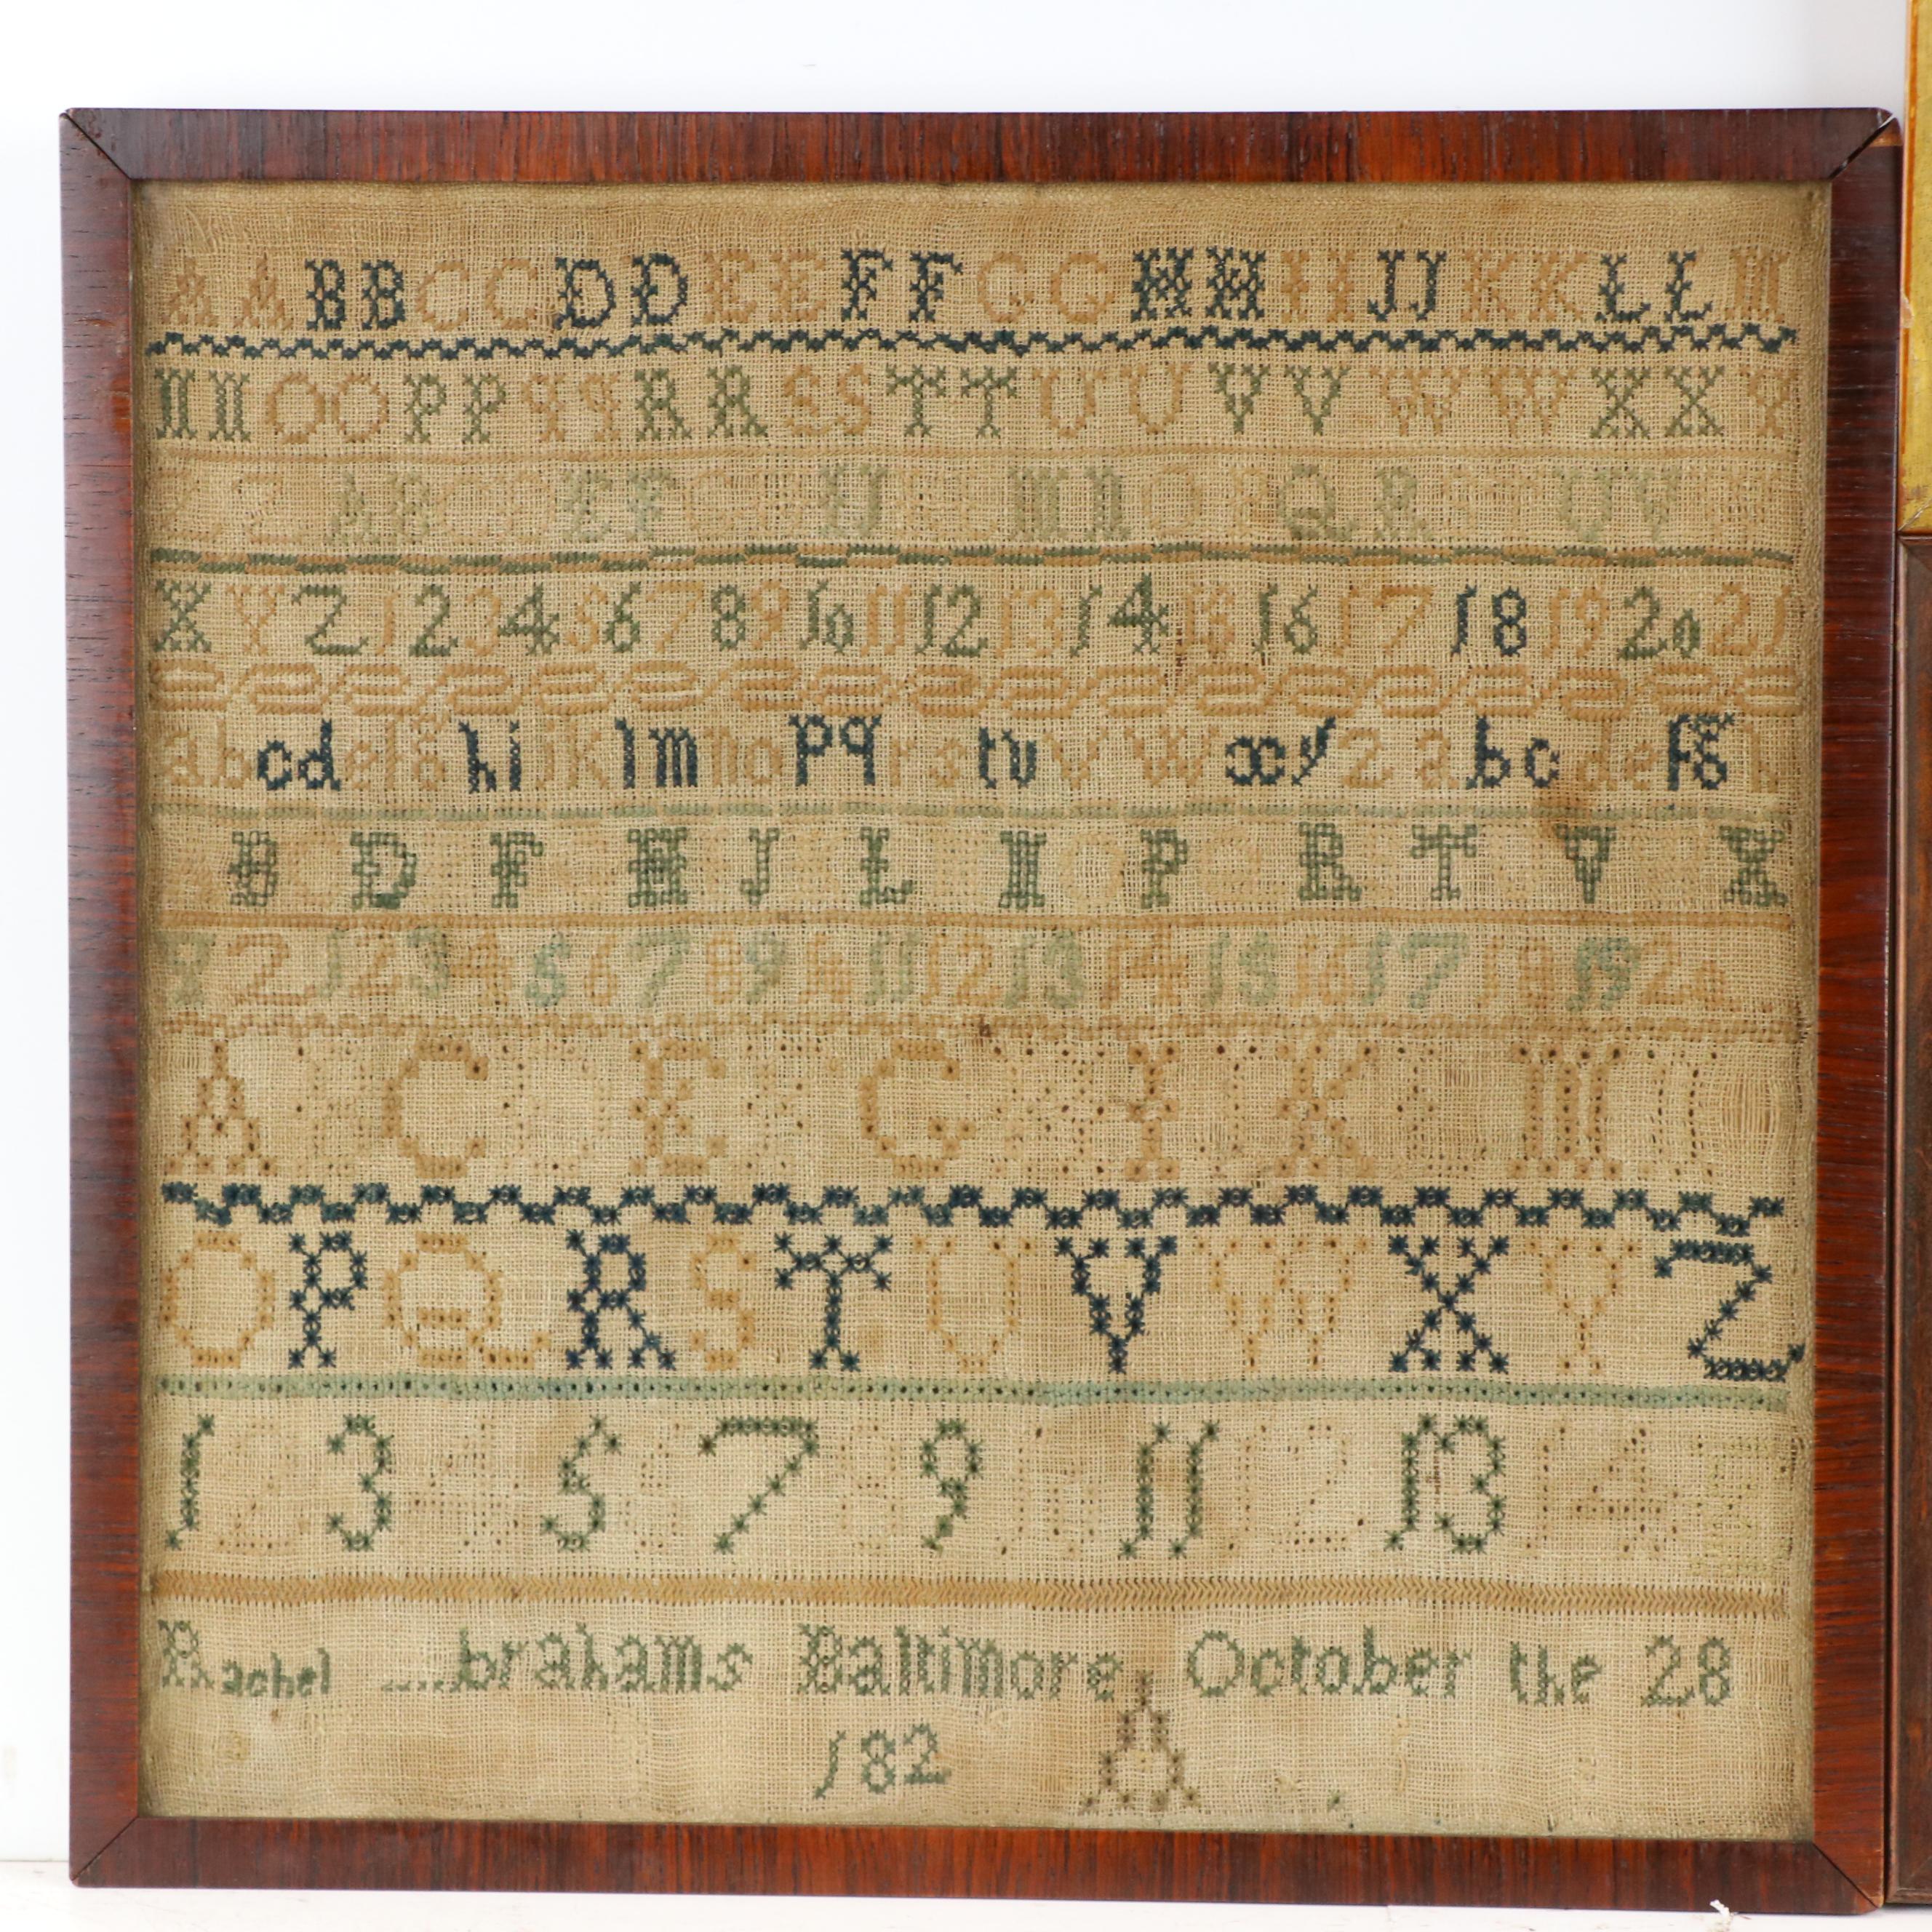 A A B B C C D D E E F F G G H H I I J J K K L L M
N N O O P P q q R R S S T T U U V V W W X X Y
Z A B C D E F G I J M N O P Q R U V
X Y Z 1 2 3 4 5 6 7 8 9 10 11 12 13 14 15 16 17 18 19 20 21
a b c d e f g h i j k l m n o p q r s t u v w x y z a b c d e f g h
B C D F H J L N O P R T V X
Y Z 1 2 3 4 5 6 7 8 9 10 11 12 13 14 15 16 17 18 19 20
A C E G I K M
O P Q R S T U V W X Y Z
1 2 3 4 5 7 8 9 11 12 13 14
Rachel brahams Baltimore October the 28
182 A